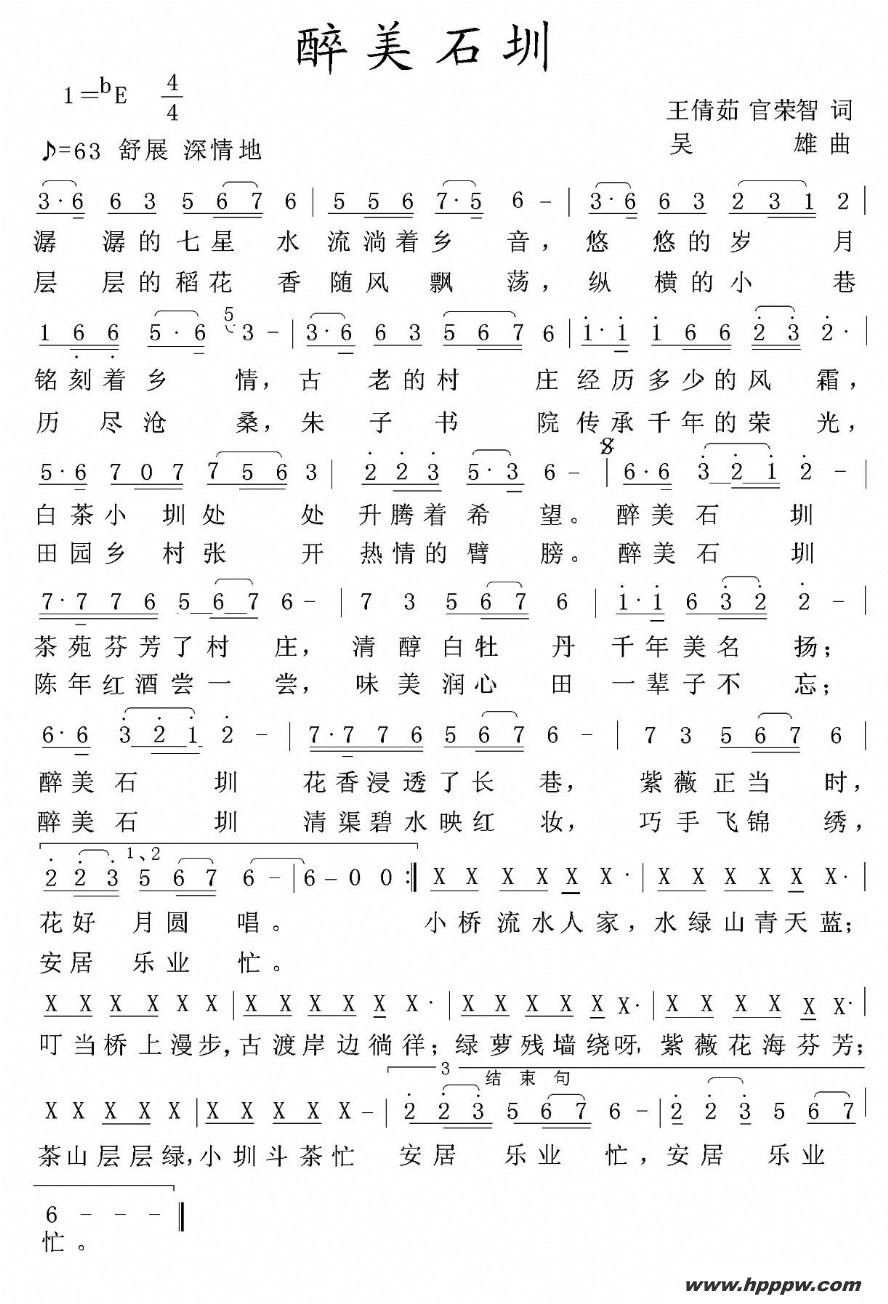 醉美石圳
1=bE 4/4
王倩茹 官荣智 词
♪=63 舒展 深情地
吴 雄 曲
3·6 6 3 5 6 7 6 | 5 5 6 7·5 6 – | 3·6 6 3 2 3 1 2 |
潺 潺的七星 水 流淌着乡 音，悠 悠的岁 月
层 层的稻花 香随风飘 荡，纵 横的小 巷
1 6 6 5·6 5 3 – | 3·6 6 3 5 6 7 6 | 1·1 1 6 6 2·3 2· |
铭刻着乡 情，古 老的村 庄 经历多少的风 霜，
历尽沧 桑，朱 子书 院传承千年的荣 光，
5·6 7 0 7 7 5 6 3 | 2 2 3 5·3 6 – | 6·6 3 2 1 2 – |
白茶小圳处 处 升腾着希 望。 醉美石 圳
田园乡村张 开 热情的臂 膀。 醉美石 圳
7·7 7 6 5 6 7 6 – | 7 3 5 6 7 6 | 1·1 6 3 2 2 – |
茶苑芬芳了村 庄， 清醇白牡 丹 千年美名 扬；
陈年红酒尝一 尝， 味美润心 田 一辈子不 忘；
6·6 3 2 1 2 – | 7·7 7 6 5 6 7 6 – | 7 3 5 6 7 6 |
醉美石 圳 花香浸透了长 巷， 紫薇正当 时，
醉美石 圳 清渠碧水映红 妆， 巧手飞锦 绣，
1、2
2 2 3 5 6 7 6 – – | 6 – 0 0 :‖ X X X X X X· | X X X X X X· |
花好 月圆 唱。 小桥流水人家，水绿山青天蓝；
安居 乐业 忙。
X X X X X X· | X X X X X X· | X X X X X X· | X X X X X X· |
叮当桥上漫步，古渡岸边徜徉；绿萝残墙绕呀，紫薇花海芬芳；
3 结束句
X X X X X | X X X X X – | 2 2 3 5 6 7 6 – | 2 2 3 5 6 7 |
茶山层层绿，小圳斗茶忙 安居 乐业 忙，安居 乐业
6 – – – ‖
忙。
www.hpppw.com